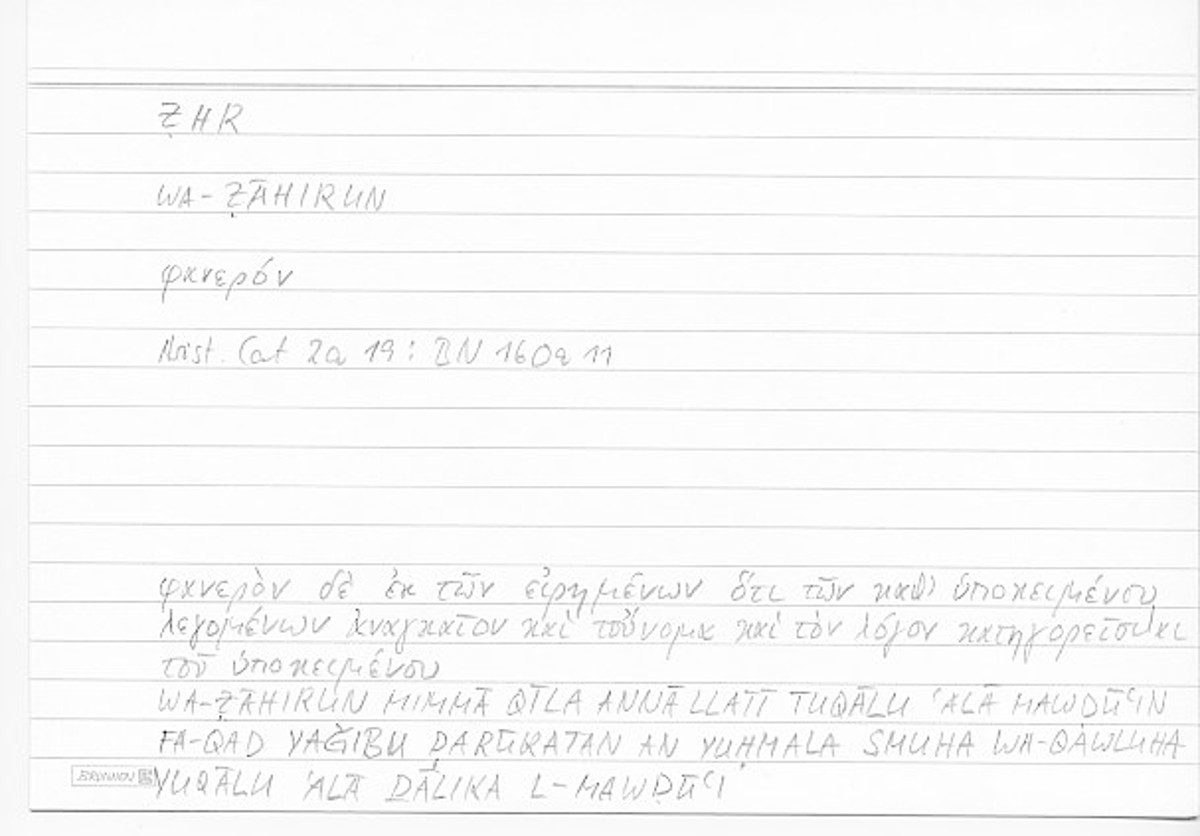 ẒHR
WA-ẒĀHIRUN
φανερόν
Arist. Cat 2a 19 : BN 160a 11
φανερὸν δὲ ἐκ τῶν εἰρημένων ὅτι τῶν καθ' ὑποκειμένου
λεγομένων ἀναγκαῖον καὶ τοὔνομα καὶ τὸν λόγον κατηγορεῖσθαι
τοῦ ὑποκειμένου
WA-ẒĀHIRUN MIMMĀ QĪLA ANNĀ LLATĪ TUQĀLU ʿALĀ MAWḌŪʿIN
FA-QAD YAǦIBU ḌARŪRATAN AN YUḤMALA SMUHA WA-QAWLUHA
BRUNNEN YUQĀLU ʿALĀ ḎĀLIKA L-MAWḌŪʿI